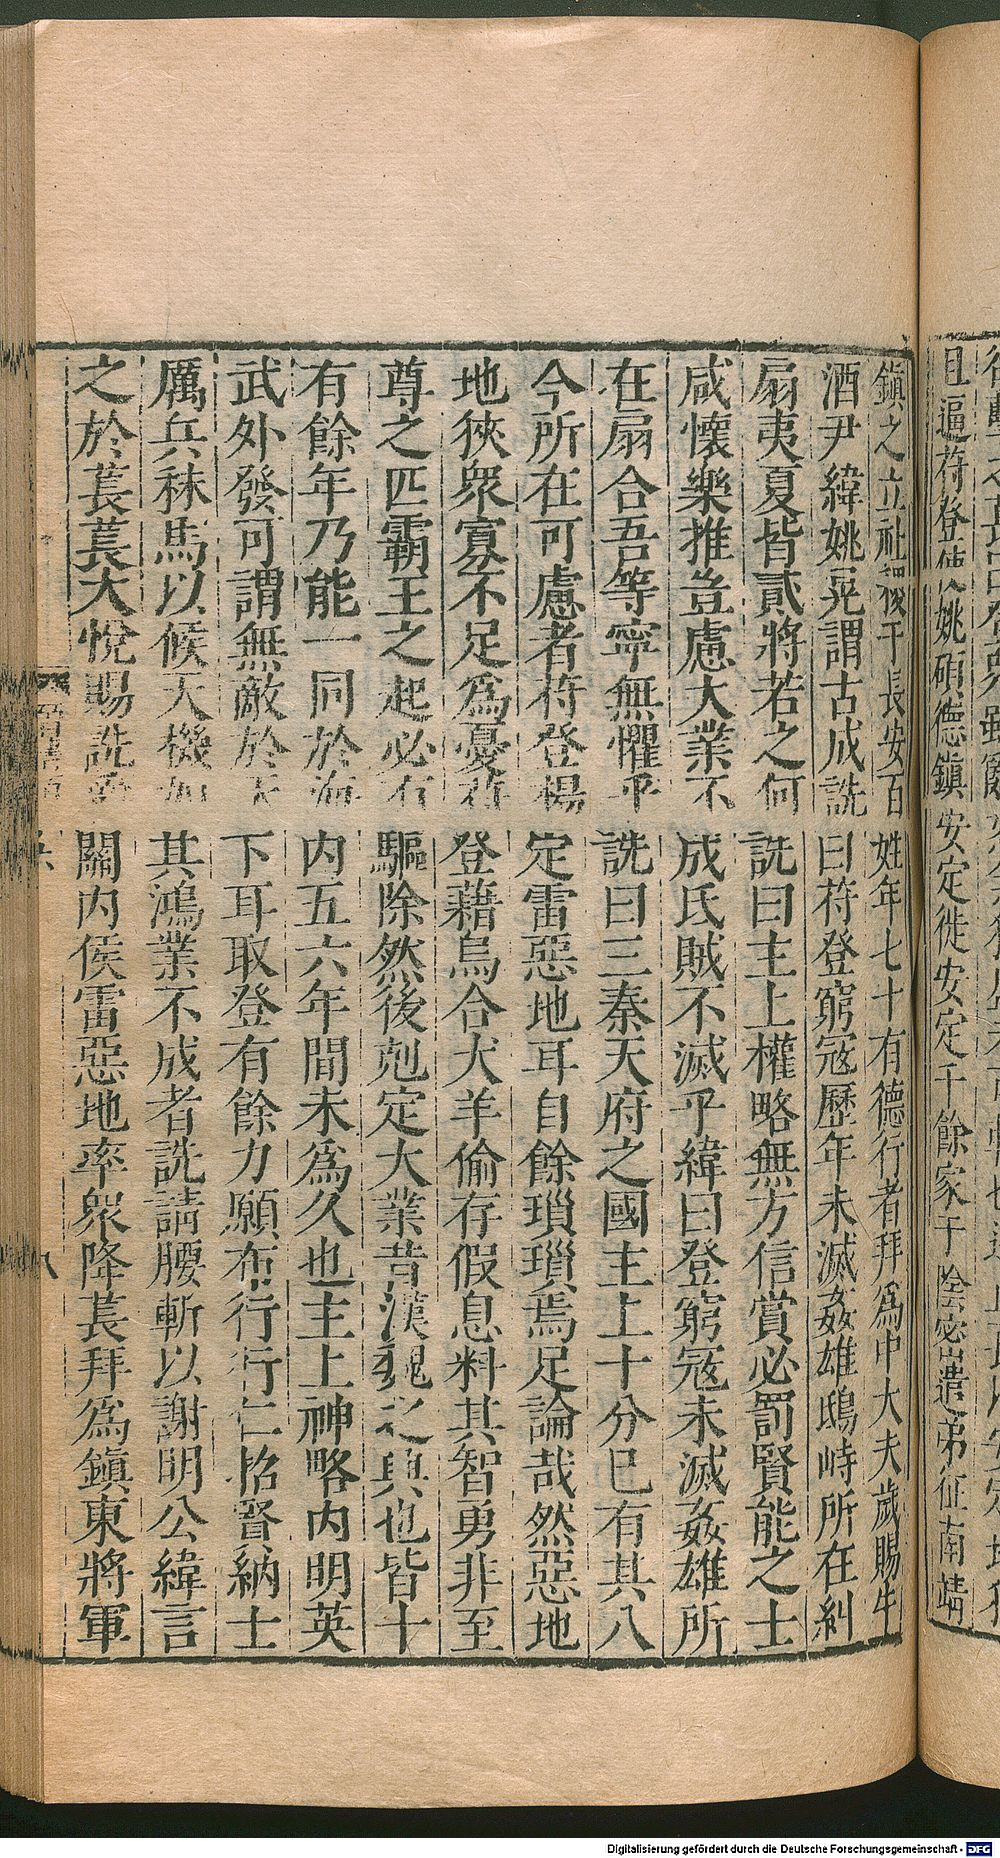 且逼苻登使姚碩德鎮安定徙安定千餘家于陰密遣弟征南靖
鎮之立社稷于長安百姓年七十有德行者拜爲中大夫歲賜牛
酒尹緯姚晃謂古成詵曰苻登窮寇歷年未滅姦雄鴟峙所在糾
扇夷夏皆貳將若之何詵曰主上權略無方信賞必罰賢能之士
咸懷樂推豈慮大業不成氐賊不滅乎緯曰登窮寇未滅姦雄所
在扇合吾等寧無懼乎詵曰三秦天府之國主上十分巳有其八
今所在可慮者苻登楊定雷惡地耳自餘瑣瑣焉足論哉然惡地
地狹衆寡不足爲憂苻登藉烏合犬羊偷存假息料其智勇非至
尊之匹霸王之起必有驅除然後剋定大業昔漢魏之興也皆十
有餘年乃能一同於海內五六年間未爲久也主上神略內明英
武外發可謂無敵於天下耳取登有餘力願布行行仁招賢納士
厲兵秣馬以候天機如其鴻業不成者詵請腰斬以謝明公緯言
之於萇萇大悅賜詵爵關內侯雷惡地率衆降萇拜爲鎮東將軍
八
Digitalisierung gefördert durch die Deutsche Forschungsgemeinschaft - DFG